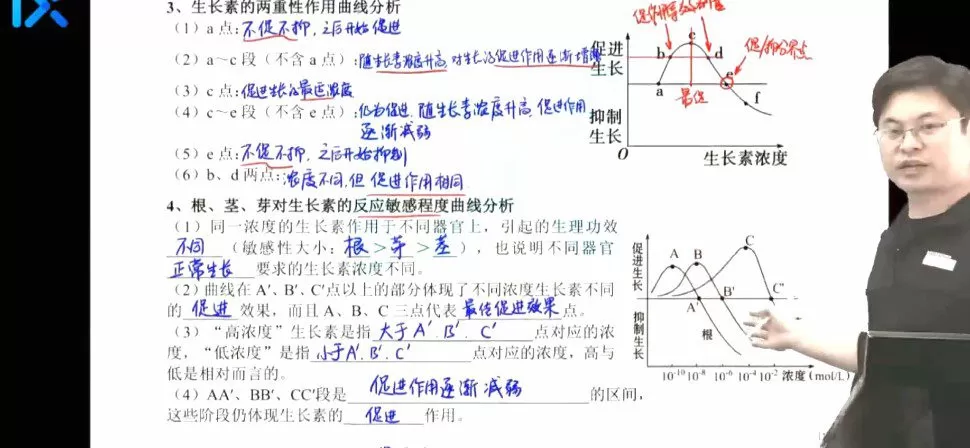 3、生长素的两重性作用曲线分析
（1）a点：不促不抑，之后开始促进
（2）a～c段（不含a点）：随生长素浓度升高，对生长的促进作用逐渐增强
（3）c点：促进生长的最适浓度
（4）c～e段（不含e点）：仍为促进，随生长素浓度升高，促进作用
逐渐减弱
（5）e点：不促不抑，之后开始抑制
（6）b、d两点：浓度不同，但促进作用相同
促进生长
抑制生长
a
b
c
d
e
f
最促
促/抑分界点
O
生长素浓度
4、根、茎、芽对生长素的反应敏感程度曲线分析
（1）同一浓度的生长素作用于不同器官上，引起的生理功效
不同（敏感性大小：根＞芽＞茎），也说明不同器官
正常生长 要求的生长素浓度不同。
（2）曲线在A′、B′、C′点以上的部分体现了不同浓度生长素不同
的 促进 效果，而且A、B、C三点代表 最佳促进效果 点。
（3）“高浓度”生长素是指 大于A′、B′、C′ 点对应的浓
度，“低浓度”是指 小于A′、B′、C′ 点对应的浓度，高与
低是相对而言的。
（4）AA′、BB′、CC′段是 促进作用逐渐减弱 的区间，
这些阶段仍体现生长素的 促进 作用。
促进生长
抑制生长
A
B
C
A′
B′
C′
根
10⁻¹⁰ 10⁻⁸ 10⁻⁶ 10⁻⁴ 10⁻² 浓度（mol/L）